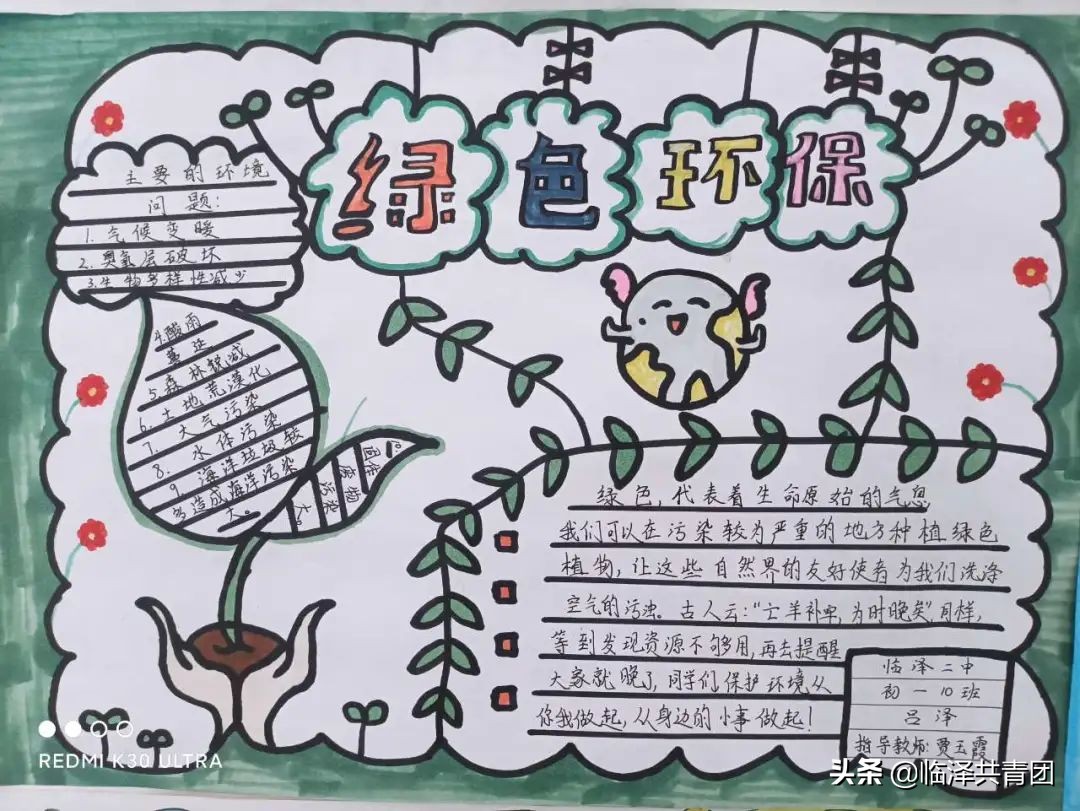 绿色环保
主要的环境
问题:
1.气候变暖
2.臭氧层破坏
3.生物多样性减少
4.酸雨
蔓延
5.森林锐减
6.土地荒漠化
7.大气污染
8.水体污染
9.海洋垃圾较
多造成海洋污染
大。
10.
固体
废物
污染
大。
绿色,代表着生命原始的气息
我们可以在污染较为严重的地方种植绿色
植物,让这些自然界的友好使者为我们洗涤
空气的污浊。古人云:“亡羊补牢,为时晚矣”同样,
等到发现资源不够用,再去提醒
大家就晚了,同学们保护环境从
你我做起,从身边的小事做起!
临泽二中
初一10班
吕泽
指导教师:贾玉霞
REDMI K30 ULTRA
头条 @临泽共青团